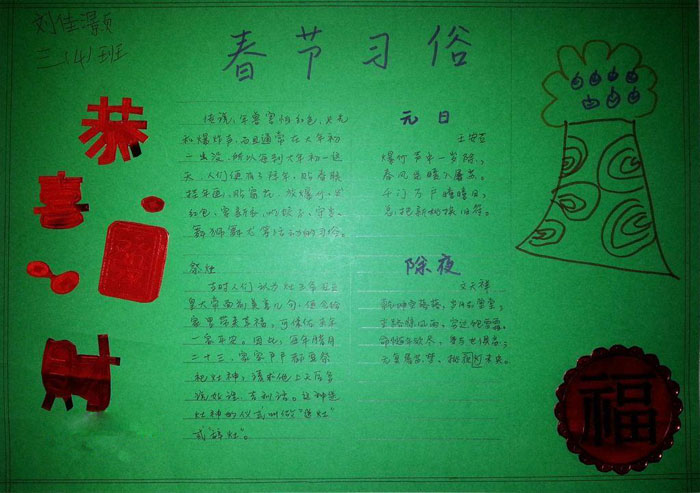 刘佳灏
三(4)班
春节习俗
恭
喜
福
传说,年兽害怕红色、火光
和爆炸声,而且通常在大年初
一出没,所以每到大年初一这
天,人们便有了拜年、贴春联
挂年画、贴窗花、放爆竹、发
红包、穿新衣、吃饺子、守岁、
舞狮舞龙等活动的习俗。
祭灶
古时人们认为灶王爷
皇大帝面前美言几句,便会给
家里带来幸福,可保佑来年
一家平安。因此,每年腊月
二十三,家家户户都要祭
祀灶神,请求他上天后多
说好话、吉利话。这种送
灶神的仪式叫做“送灶”
或“辞灶”。
元日
王安石
爆竹声中一岁除,
春风送暖入屠苏。
千门万户曈曈日,
总把新桃换旧符。
除夜
文天祥
乾坤空落落,岁月去堂堂;
末路惊风雨,穷边饱雪霜。
命随年欲尽,身与世俱忘;
无复屠苏梦,挑灯夜未央。